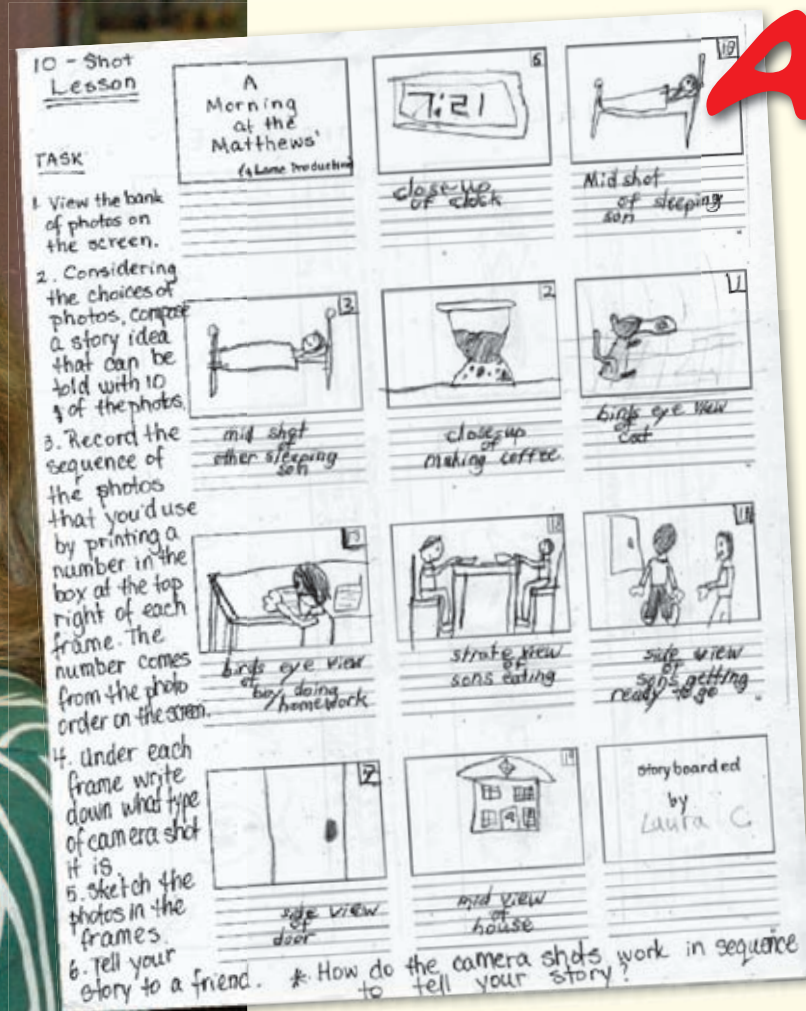 10 - Shot
Lesson
TASK
1. View the bank
of photos on
the screen.
2. Considering
the choices of
photos, compose
a story idea
that can be
told with 10
of the photos.
3. Record the
sequence of
the photos
that you'd use
by printing a
number in the
box at the top
right of each
frame. The
number comes
from the photo
order on the screen.
4. Under each
frame write
down what type
of camera shot
it is
5. Sketch the
photos in the
frames.
6. Tell your
story to a friend.
* How do the camera shots work in sequence
to tell your story?
A
Morning
at the
Matthews'
Production
6
7:21
close-up
of clock
Mid shot
of sleeping
son
3
mid shot
of
other sleeping
son
2
close-up
of
making coffee
1
birds eye view
of
birds eye view
of
boy doing
homework
strate view
of
sons eating
side view
of
sons getting
ready to go
side view
of
door
mid view
of
house
Storyboarded
by
Laura C.
A